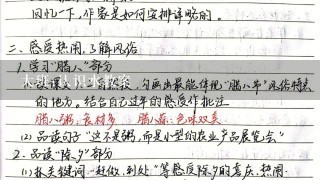 回忆一下,作家是如何安排详略的。
二、感受热闹,了解风俗
1.学习“腊八”部分
课文,勾画出最能体现“腊八节”风俗特点
的地方。结合自己过年的感受作批注
腊八粥:食材多 腊八蒜:色味双美
(2)品读句子“这不是粥,而是小型的农业产品展览会”
2.品读“除夕”部分
(1)抓关键词“赶做,到处”等感受除夕的喜庆、热闹